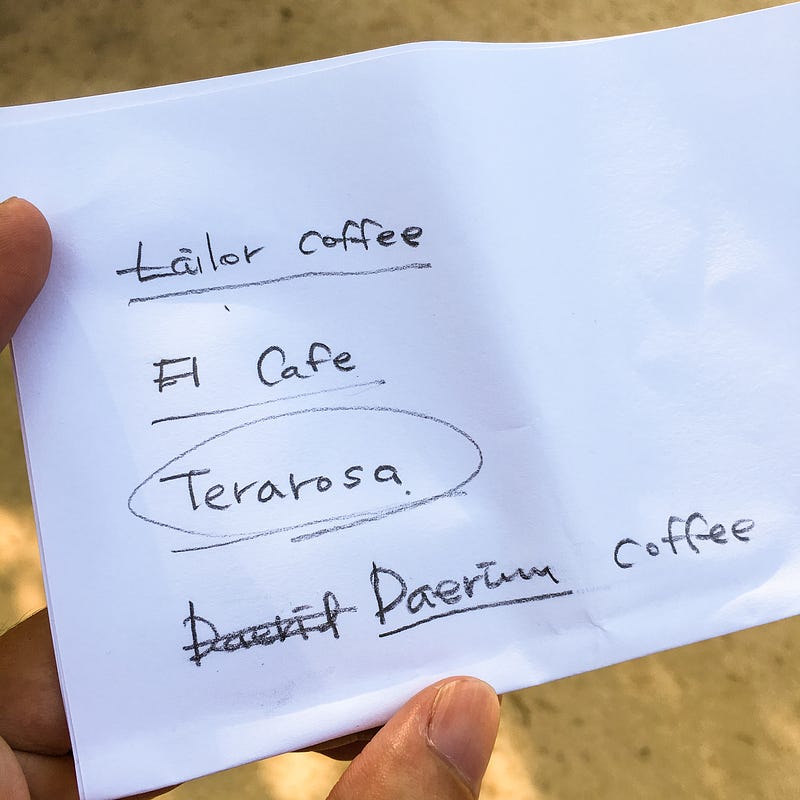 tailor coffee
El Cafe
Terarosa.
Daerim coffee